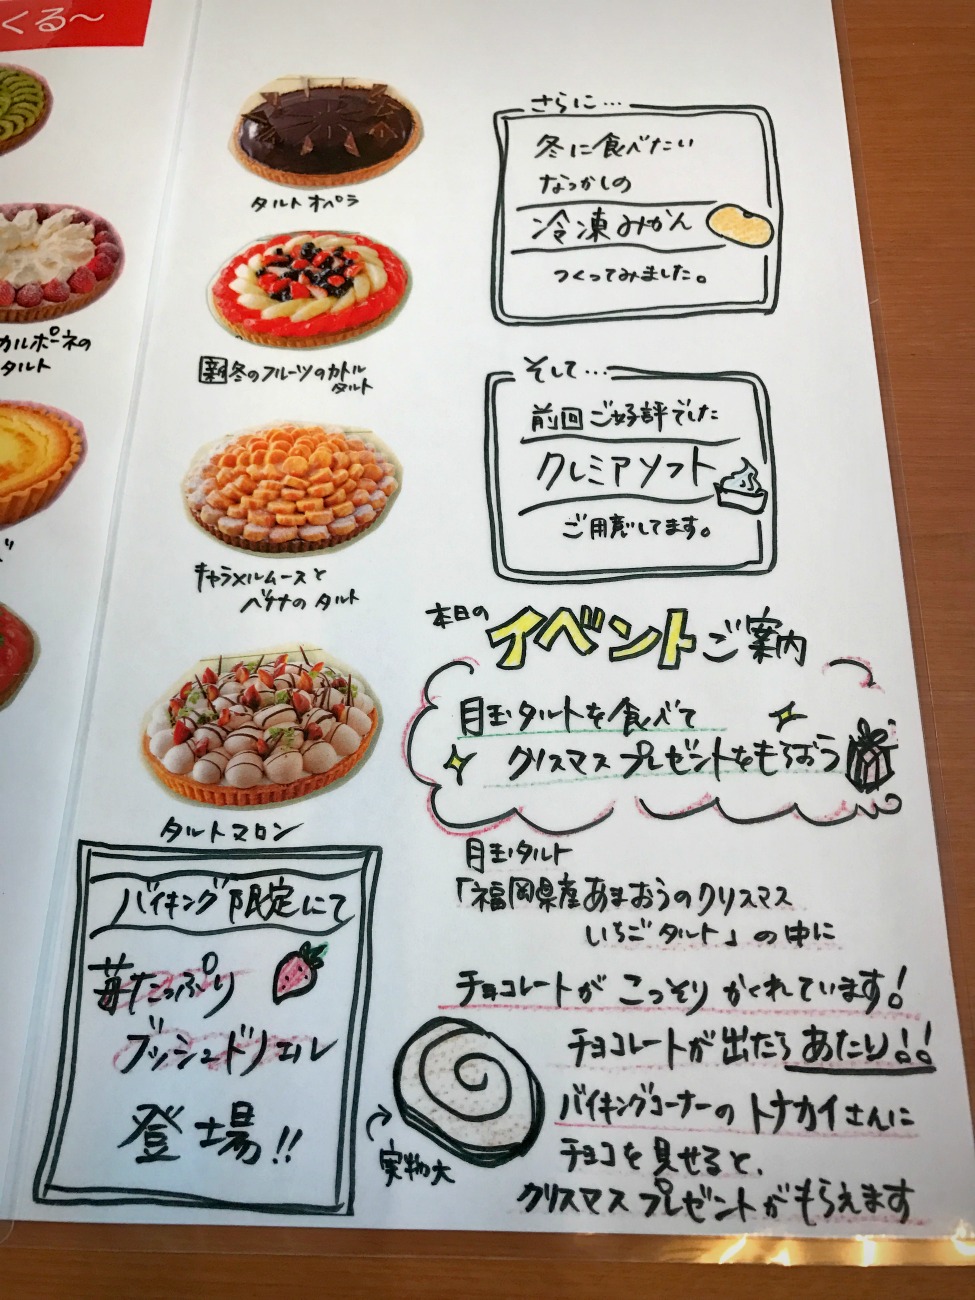 くる〜
カルポーネの
タルト
ど
タルトオペラ
新冬のフルーツのカトル
タルト
キャラメルムースと
バナナのタルト
タルトマロン
バイキング限定にて
苺たっぷり
ブッシュドノエル
登場!!
さらに…
冬に食べたい
なつかしの
冷凍みかん
つくってみました。
そして…
前回ご好評でした
クレミアソフト
ご用意してます。
本日の
イベントご案内
目玉タルトを食べて
クリスマスプレゼントをもらおう
目玉タルト
「福岡県産あまおうのクリスマス
いちごタルト」の中に
チョコレートがこっそりかくれています!
チョコレートが出たらあたり!!
バイキングコーナーのトナカイさんに
チョコを見せると、
クリスマスプレゼントがもらえます
実物大